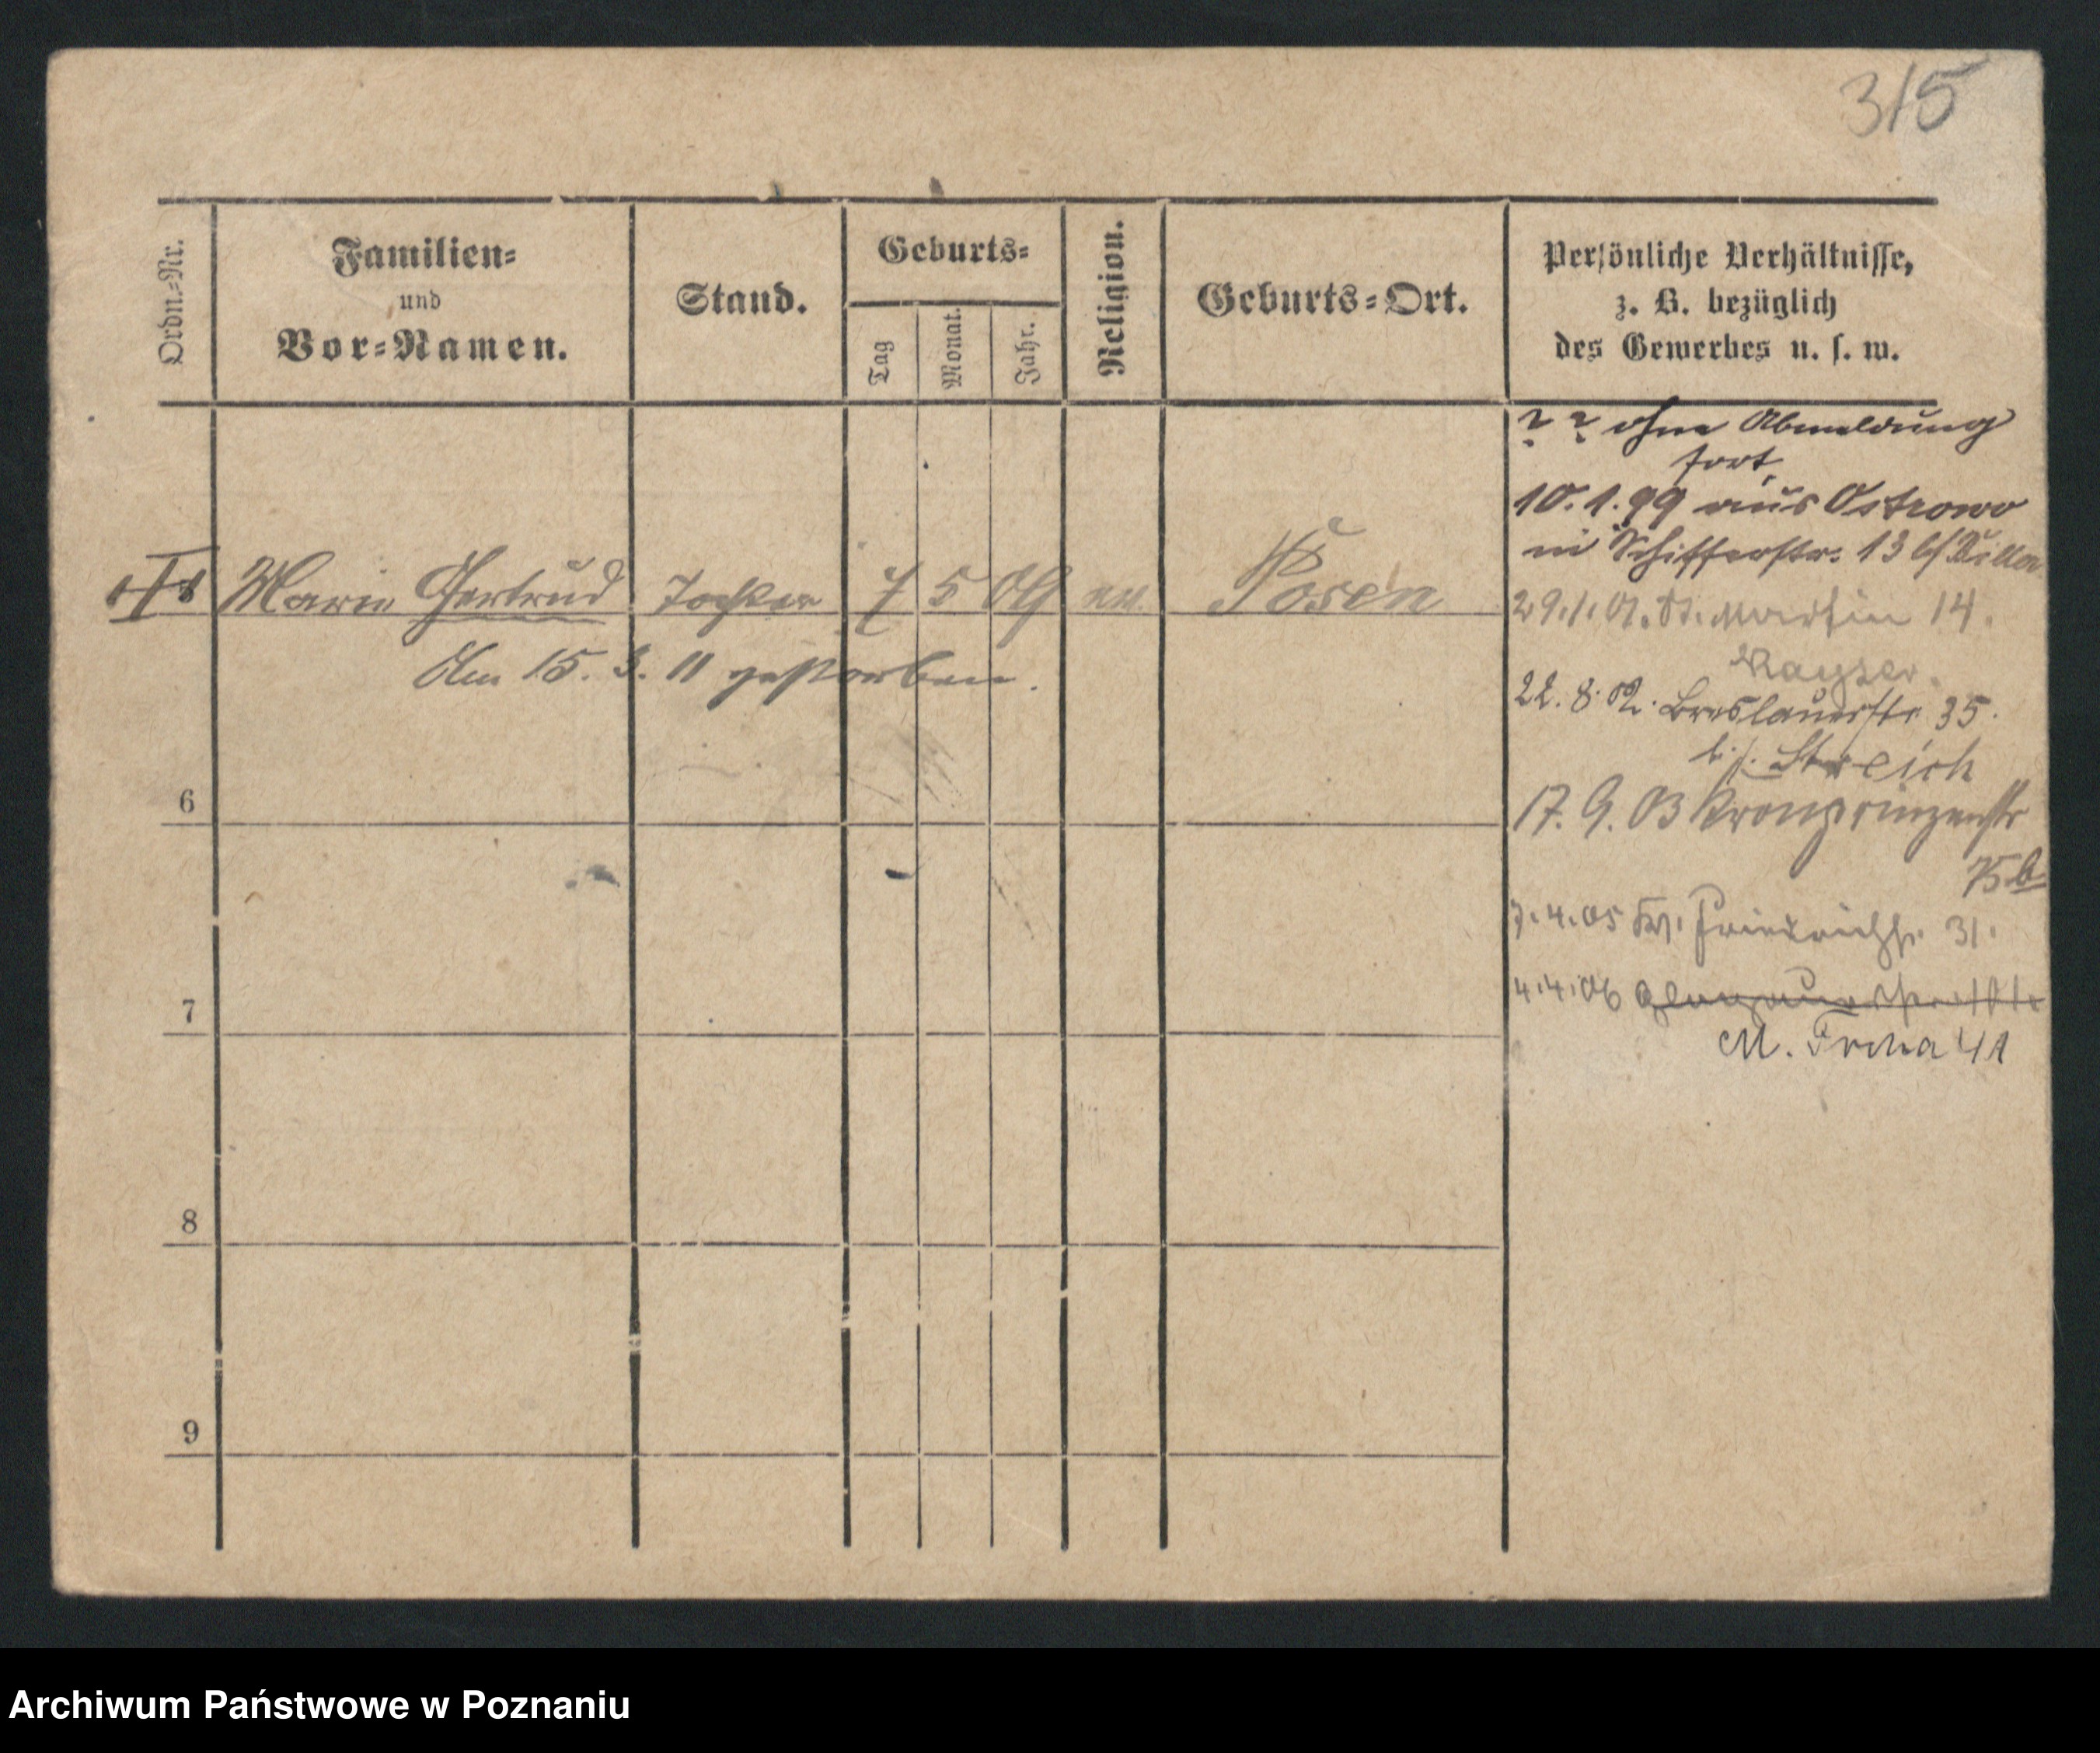 315
Ordn.-Nr.
Familien-
und
Vor-Namen.
Stand.
Geburts-
Tag
Monat.
Jahr.
Religion.
Geburts-Ort.
Persönliche Verhältnisse,
z. B. bezüglich
des Gewerbes u. s. w.
? ? ohne Abmeldung
fort
10.1.99 aus Ostrowo
in Schifferstr. 13 b/
Marie Gertrud Tochter 7 5 09 ev. Posen
29.1.01. St. Martin 14.
Kayser.
Am 15. 3. 11 gestorben.
22. 8. 02. Breslauerstr 35.
b./. Streich
6
17. 9. 03 Kronprinzenstr
75b
7.4.05 Kl. Friedrichstr. 31.
7
4.4.06
M. 41
8
9
Archiwum Państwowe w Poznaniu